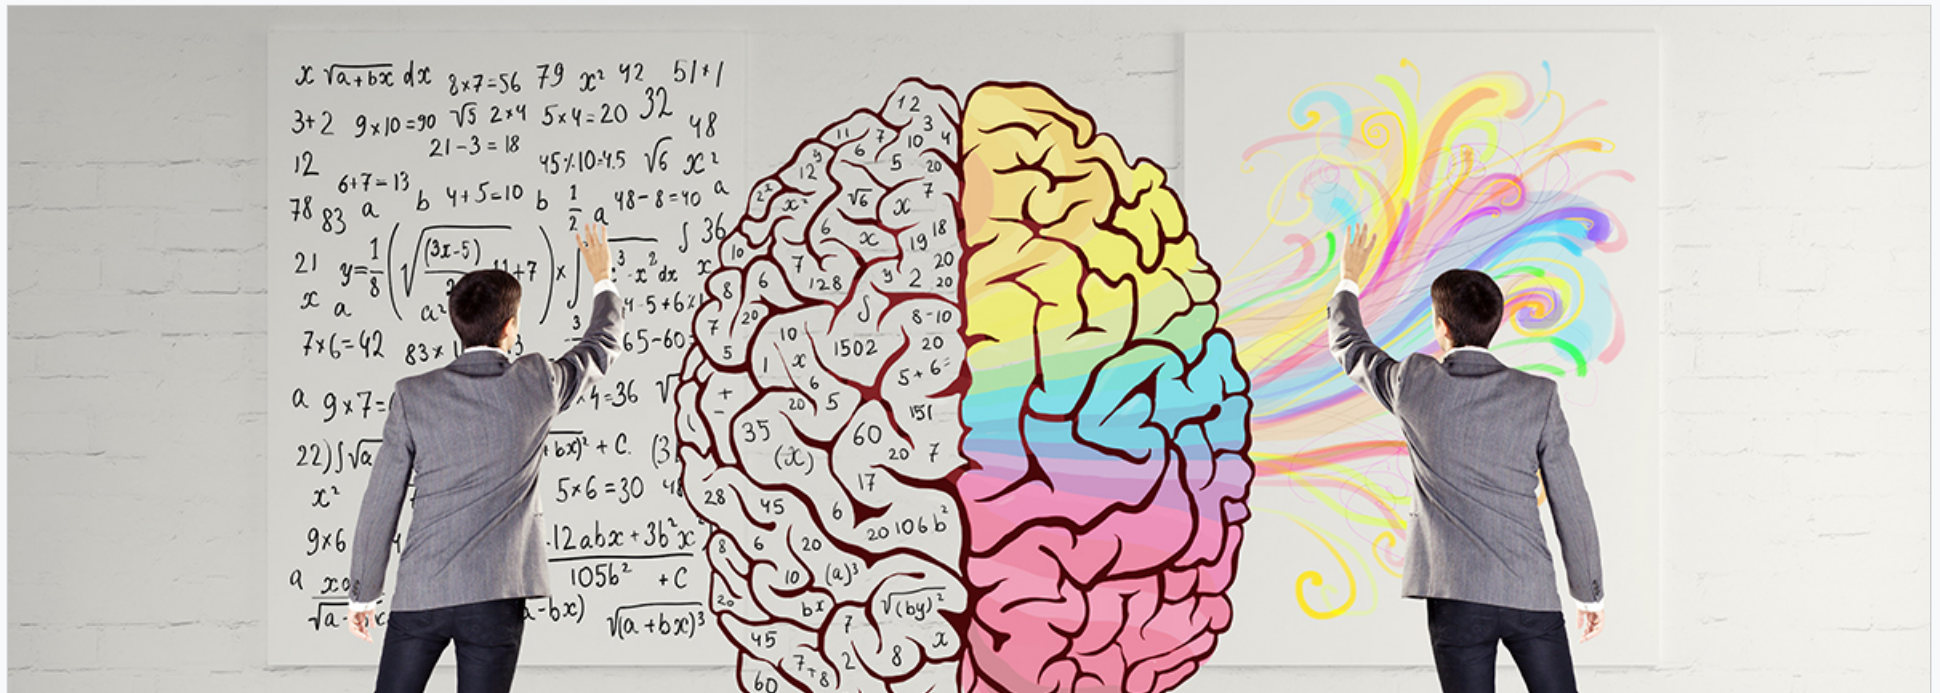 x √a+bx dx 8×7=56 79 x² 42 51+1
3+2 9×10=90 √5 2×4 5×4=20 32
48
21-3=18
12 45%10=4.5 √6 x²
6+7=13 b 4+5=10 b 1/2 48-8=40 a
78 83 a a
∫ 36
21 y=1/8 (√(3x-5) 11+7) × ∫ ³-x² dx x
x a a² 4-5+6%
3
7×6=42 83× 3 65-60=
a 9×7= ×4=36 √
22) ∫√a +bx)² + C. (3
x² 5×6=30 48
9×6 4 -12abx+3b²x²
105b² +C
a
√a- a-bx) √(a+bx)³
12
11 7 3
6 10 4
12 y 5 20
2ˣ x² √6 x 7
6 x 19 18
10 7 20
8 6 128 y 2 20
7 20 ∫ 8-10
10 1502 20
5 1 x 5+6=
6
+ 20 5 151
-
35 60
(x) 20 7
17
28 45 6 20 106b²
8 6 20
10 (a)³
20 bx √(by)²
45 7 x
7+8 2 8
60